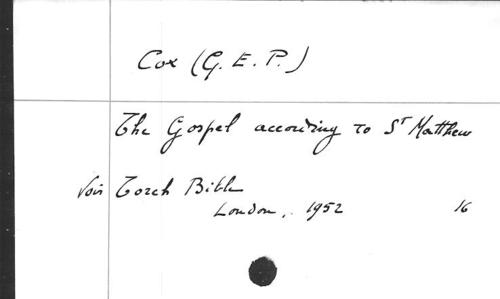 Cox (G. E. P.)
The Gospel according to St Matthew
Voir Torch Bible
London, 1952 16